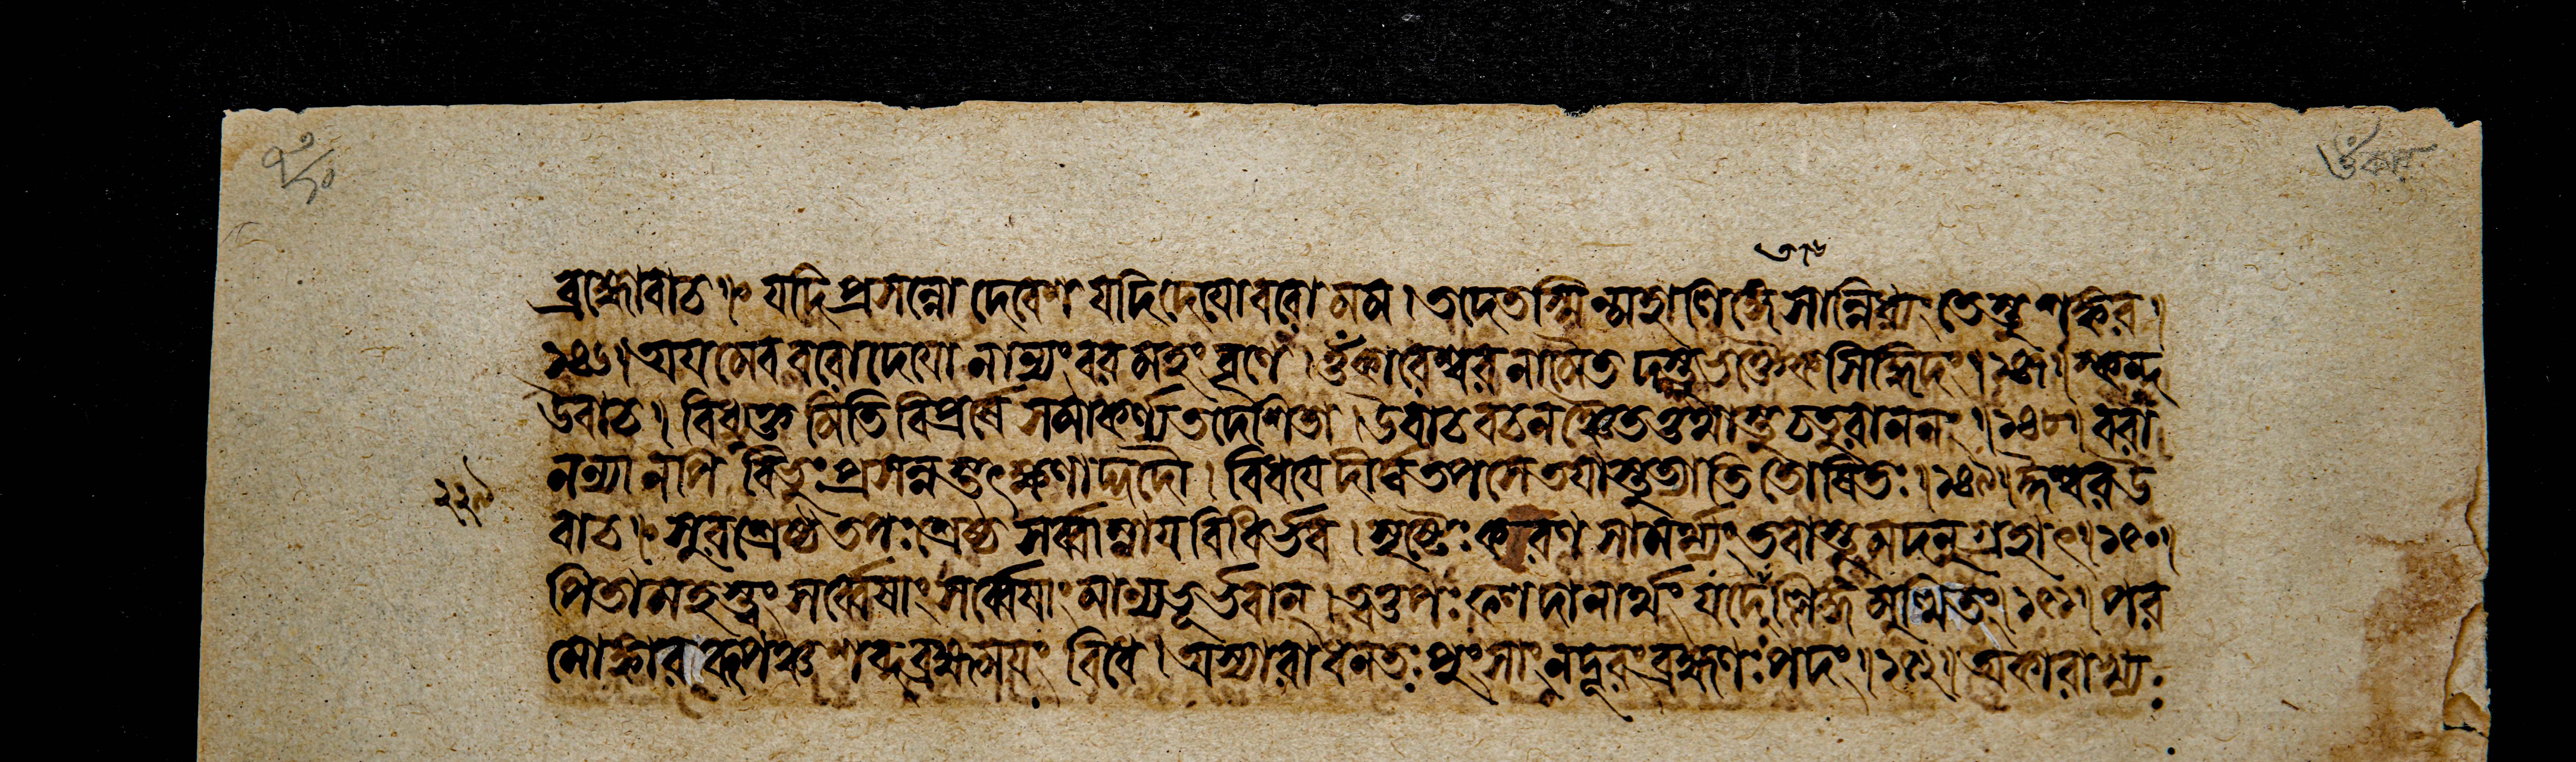 ব্রহ্মোবাচ ॥ যদি প্রসন্নো দেবেশ যদি দেয়ো বরো মম । তদেতস্মিন্মহালিঙ্গে সান্নিধ্যং তেস্তু শঙ্কর ।
১৪৬॥ অয়মেব বরো দেয়ো নান্যং বরমহং বৃণে । ওঁকারেশ্বরনামৈতদস্তু ভক্তৈকসিদ্ধিদং ॥ ১৪৭॥ স্কন্দ
উবাচ ॥ বিধ্যুক্তমিতি বিপ্রর্ষে সমাকর্ণ্য তদেশিতা । উবাচ বচনঞ্চৈতত্তথাস্তু চতুরাননং ॥ ১৪৮॥ বরা
নন্যানপি বিভুঃ প্রসন্নস্তৎক্ষণাদ্দদৌ । বিধয়ে দীর্ঘতপসে তয়া স্তুত্যাতিতোষিতঃ ॥ ১৪৯॥ ঈশ্বর উ
বাচ ॥ সুরশ্রেষ্ঠ তপঃশ্রেষ্ঠ সর্ব্বাম্নায়বিধির্ভব । সৃষ্টেঃ করণসামর্থ্যং তবাস্তু মদনুগ্রহাৎ ॥ ১৫০॥
পিতামহস্ত্বং সর্ব্বেষাং সর্ব্বেষাং মান্যভূর্ভবান্ । ত্বত্তপঃফলদানার্থং যদেতল্লিঙ্গমুত্থিতং ॥ ১৫১॥ পর
মোঙ্কাররূপঞ্চ শব্দব্রহ্মময়ং বিধে । অস্যারাধনতঃ পুংসাং ন দূরং ব্রহ্মণঃ পদং ॥ ১৫২॥ অকারাখ্য